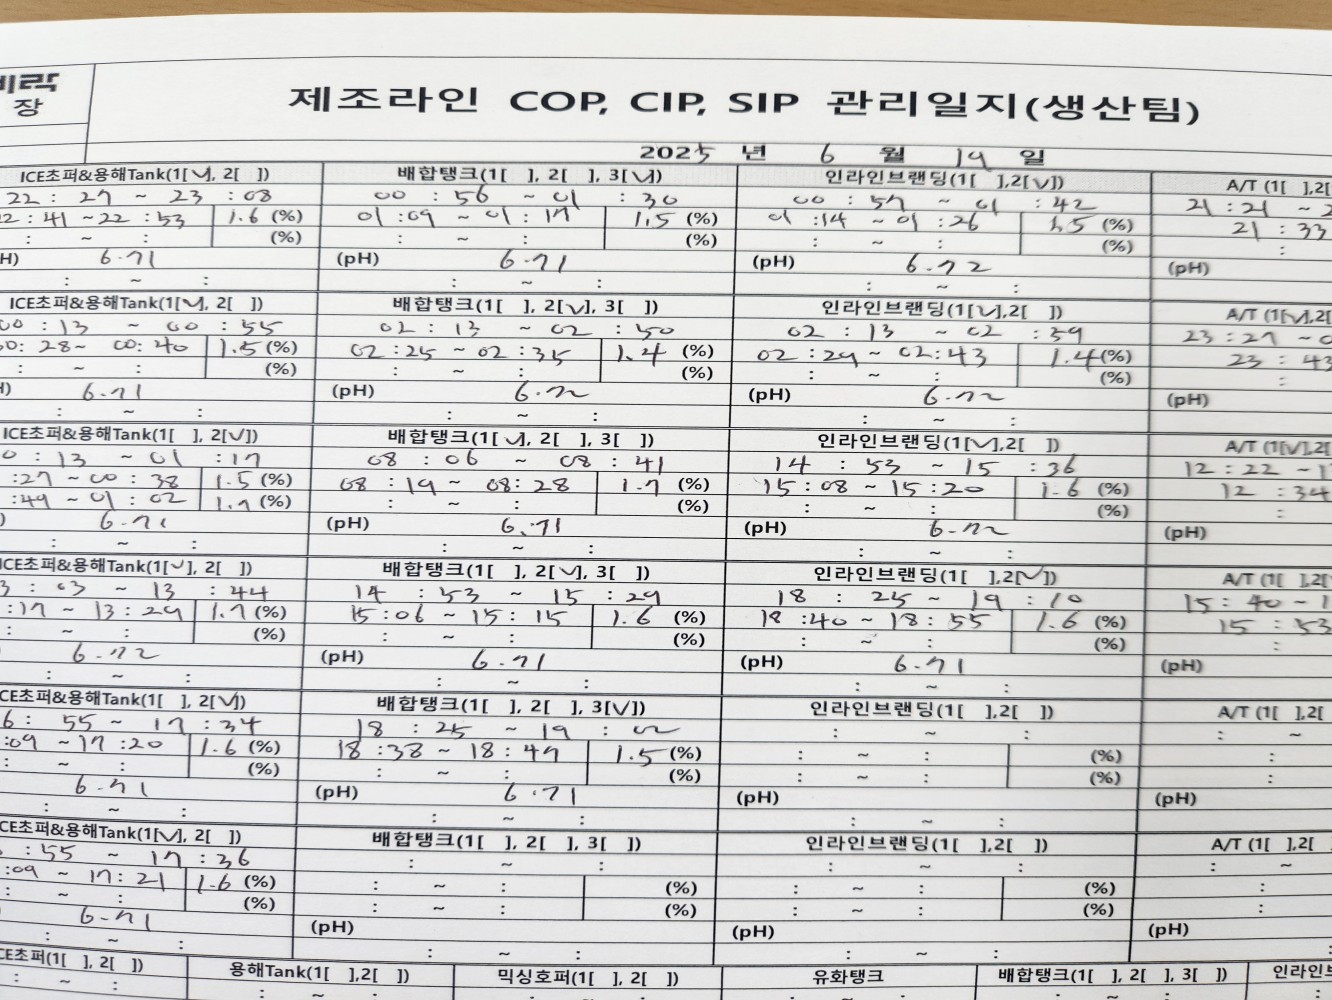 비락
장
제조라인 COP, CIP, SIP 관리일지(생산팀)
2025 년 6 월 19 일
ICE초퍼&용해Tank(1[✓], 2[ ]) 배합탱크(1[ ], 2[ ], 3[✓]) 인라인브랜딩(1[ ],2[✓]) A/T (1[ ],2[
22 : 27 ~ 23 : 08 00 : 56 ~ 01 : 30 00 : 57 ~ 01 : 42 21 : 21 ~ 2
22 : 41 ~ 22 : 53 1.6 (%) 01 : 09 ~ 01 : 17 1.5 (%) 01 : 14 ~ 01 : 26 1.5 (%) 21 : 33
: ~ : (%) : ~ : (%) : ~ : (%) :
H) 6.71 (pH) 6.71 (pH) 6.72 (pH)
: ~ : : ~ : : ~ :
ICE초퍼&용해Tank(1[✓], 2[ ]) 배합탱크(1[ ], 2[✓], 3[ ]) 인라인브랜딩(1[✓],2[ ]) A/T (1[✓],2[
00 : 13 ~ 00 : 55 02 : 13 ~ 02 : 50 02 : 13 ~ 02 : 59 23 : 27 ~ 0
00 : 28 ~ 00 : 40 1.5 (%) 02 : 25 ~ 02 : 35 1.4 (%) 02 : 29 ~ 02 : 43 1.4 (%) 23 : 43
: ~ : (%) : ~ : (%) : ~ : (%) :
H) 6.71 (pH) 6.72 (pH) 6.72 (pH)
: ~ : : ~ : : ~ :
ICE초퍼&용해Tank(1[ ], 2[✓]) 배합탱크(1[✓], 2[ ], 3[ ]) 인라인브랜딩(1[✓],2[ ]) A/T (1[✓],2[
0 : 13 ~ 01 : 17 08 : 06 ~ 08 : 41 14 : 53 ~ 15 : 36 12 : 22 ~ 1
: 27 ~ 00 : 38 1.5 (%) 08 : 19 ~ 08 : 28 1.7 (%) 15 : 08 ~ 15 : 20 1.6 (%) 12 : 34
: 49 ~ 01 : 02 1.7 (%) : ~ : (%) : ~ : (%) :
) 6.71 (pH) 6.71 (pH) 6.72 (pH)
: ~ : : ~ : : ~ :
ICE초퍼&용해Tank(1[✓], 2[ ]) 배합탱크(1[ ], 2[✓], 3[ ]) 인라인브랜딩(1[ ],2[✓]) A/T (1[ ],2[
3 : 03 ~ 13 : 44 14 : 53 ~ 15 : 29 18 : 25 ~ 19 : 10 15 : 40 ~ 1
: 17 ~ 13 : 29 1.7 (%) 15 : 06 ~ 15 : 15 1.6 (%) 18 : 40 ~ 18 : 55 1.6 (%) 15 : 53
: ~ : (%) : ~ : (%) : ~ : (%) :
6.72 (pH) 6.71 (pH) 6.71 (pH)
: ~ : : ~ : : ~ :
CE초퍼&용해Tank(1[ ], 2[✓]) 배합탱크(1[ ], 2[ ], 3[✓]) 인라인브랜딩(1[ ],2[ ]) A/T (1[ ],2[
6 : 55 ~ 17 : 34 18 : 25 ~ 19 : 02 : ~ : : ~
: 09 ~ 17 : 20 1.6 (%) 18 : 38 ~ 18 : 47 1.5 (%) : ~ : (%) :
: ~ : (%) : ~ : (%) : ~ : (%) :
6.71 (pH) 6.71 (pH) (pH)
: ~ : : ~ : : ~ :
CE초퍼&용해Tank(1[✓], 2[ ]) 배합탱크(1[ ], 2[ ], 3[ ]) 인라인브랜딩(1[ ],2[ ]) A/T (1[ ],2[
: 55 ~ 17 : 36 : ~ : : ~ : : ~
: 09 ~ 17 : 21 1.6 (%) : ~ : (%) : ~ : (%) :
: ~ : (%) : ~ : (%) : ~ : (%) :
6.71 (pH) (pH) (pH)
: ~ : : ~ : : ~ :
CE초퍼(1[ ], 2[ ]) 용해Tank(1[ ],2[ ]) 믹싱호퍼(1[ ], 2[ ]) 유화탱크 배합탱크(1[ ], 2[ ], 3[ ]) 인라인브
: ~ : : ~ : : ~ : : ~ : : ~ : :